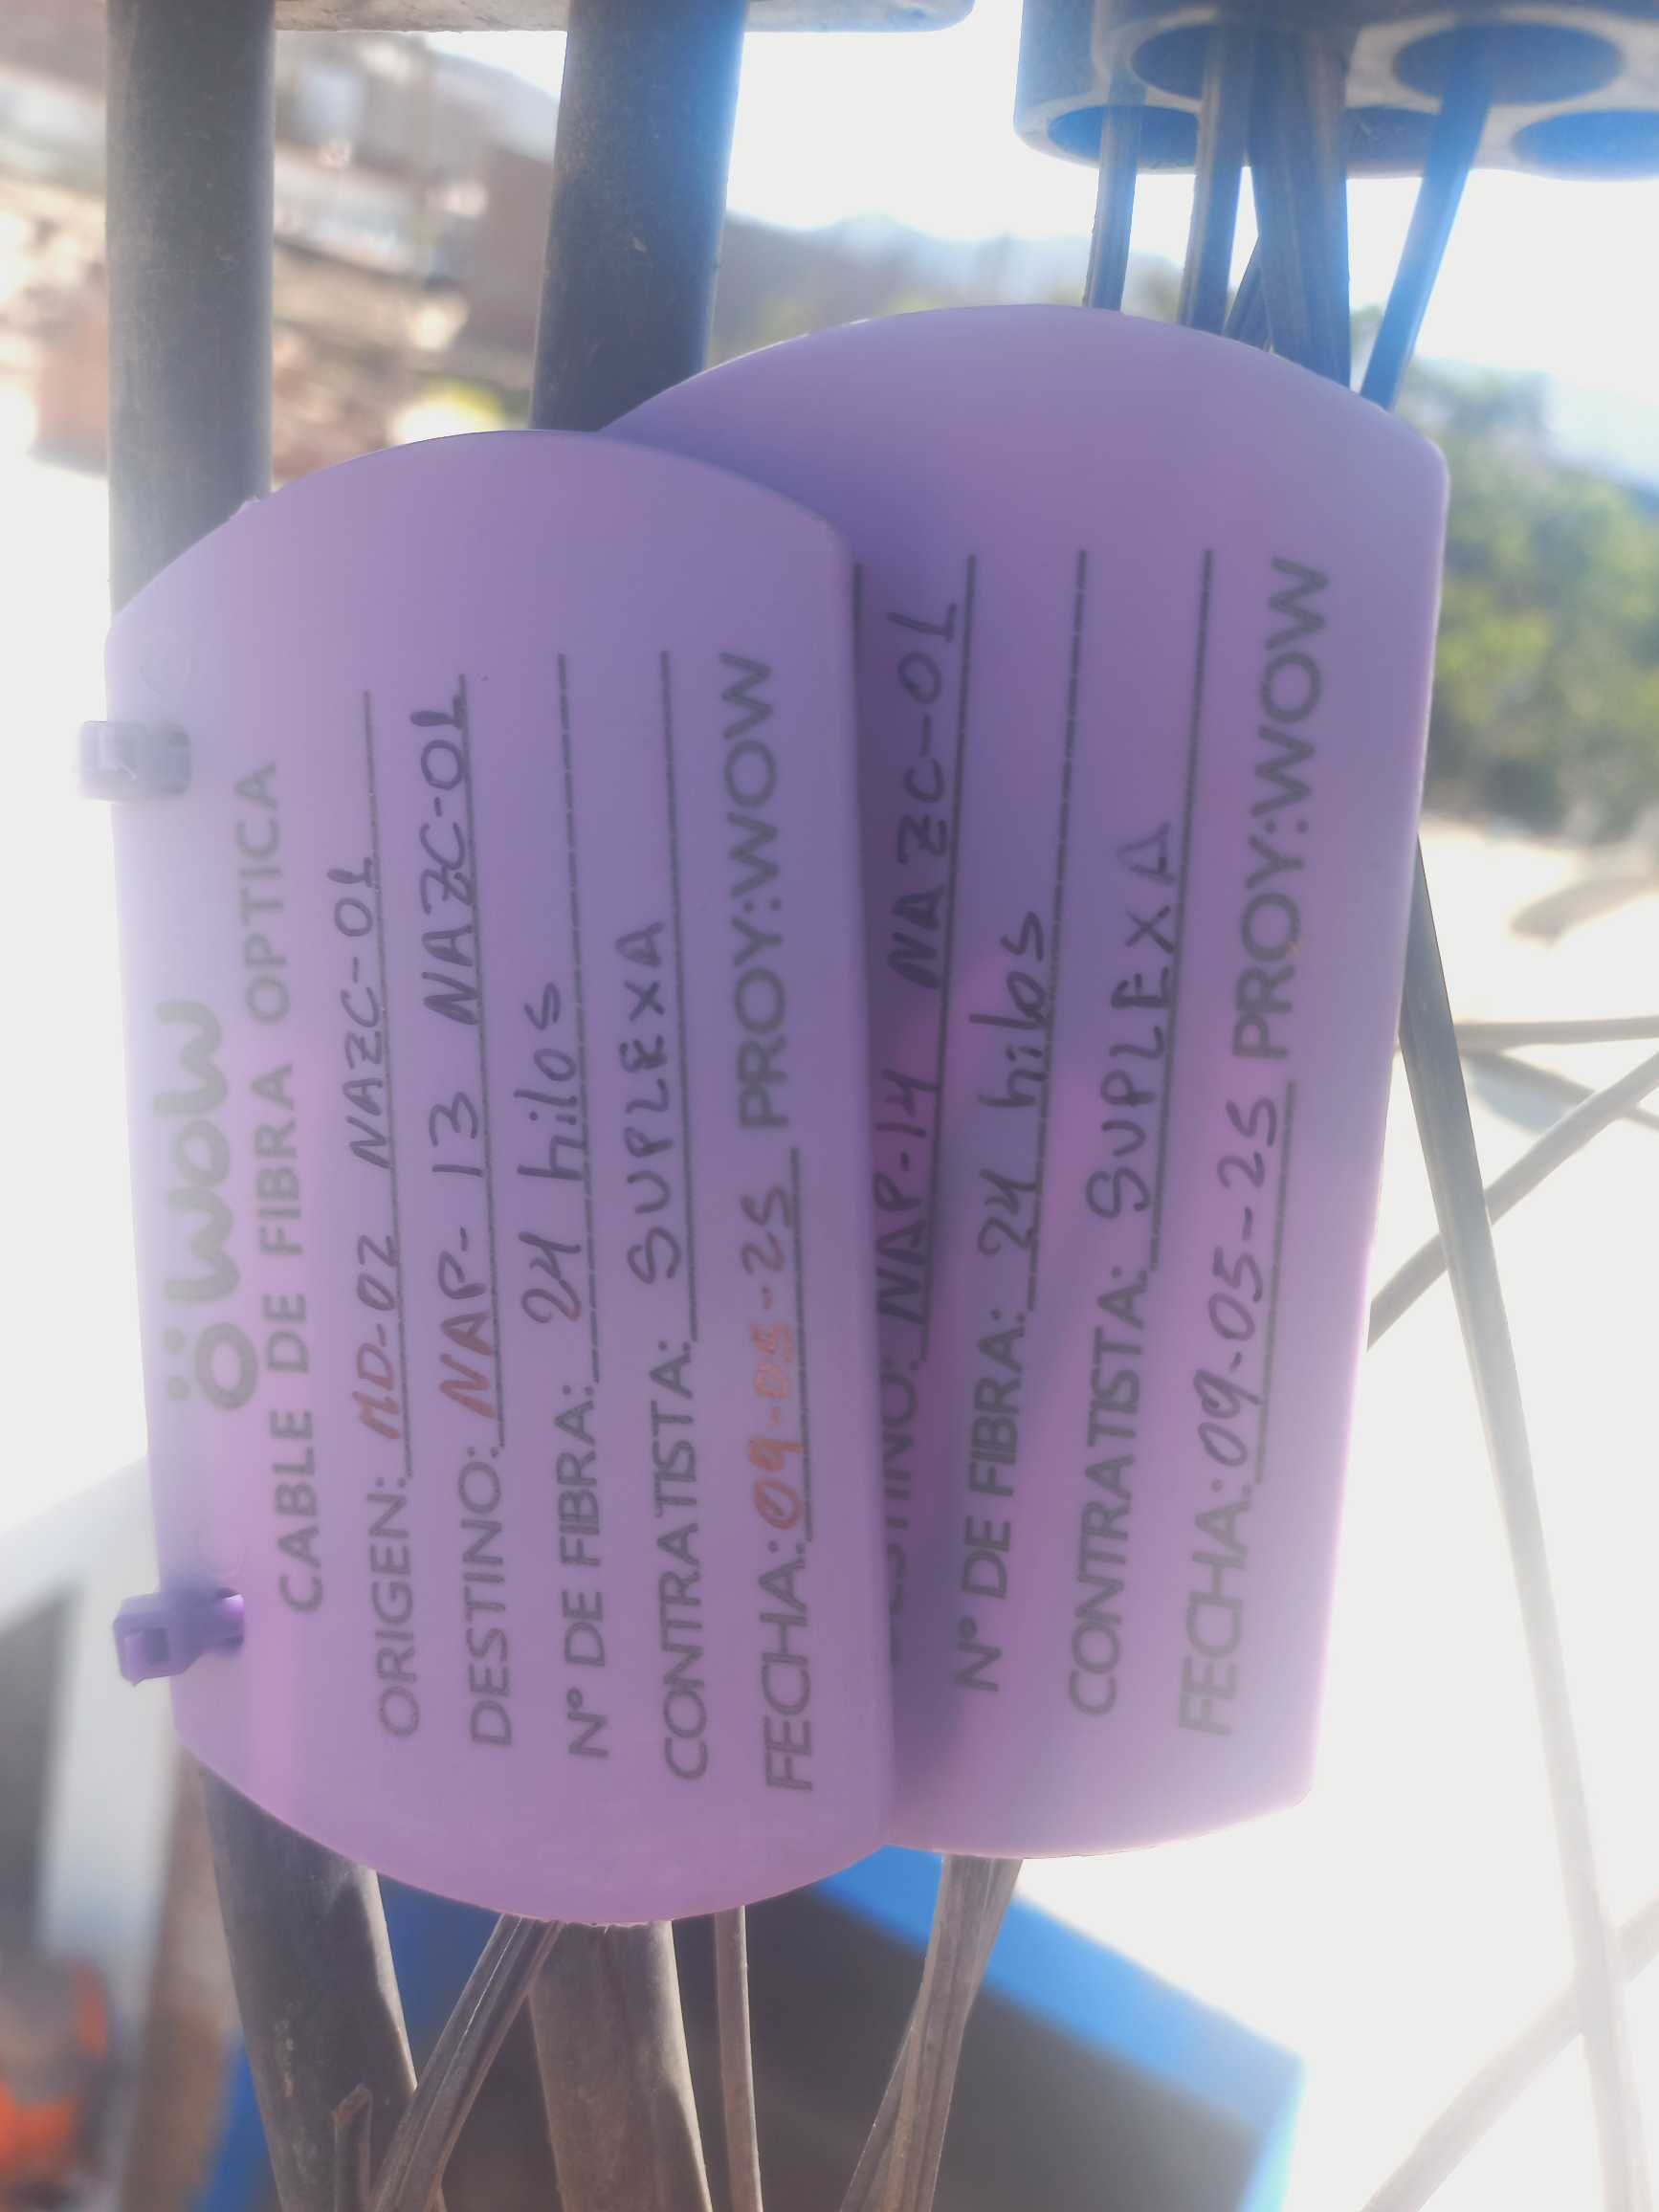 wow
CABLE DE FIBRA OPTICA
ORIGEN: MD-02 NAZC-01
DESTINO: NAP-13 NAZC-01
N° DE FIBRA: 24 hilos
CONTRATISTA: SUPLEXA
FECHA: 09-05-25 PROY:WOW
DESTINO: NAP-14 NAZC-01
N° DE FIBRA: 24 hilos
CONTRATISTA: SUPLEXA
FECHA: 09-05-25 PROY:WOW